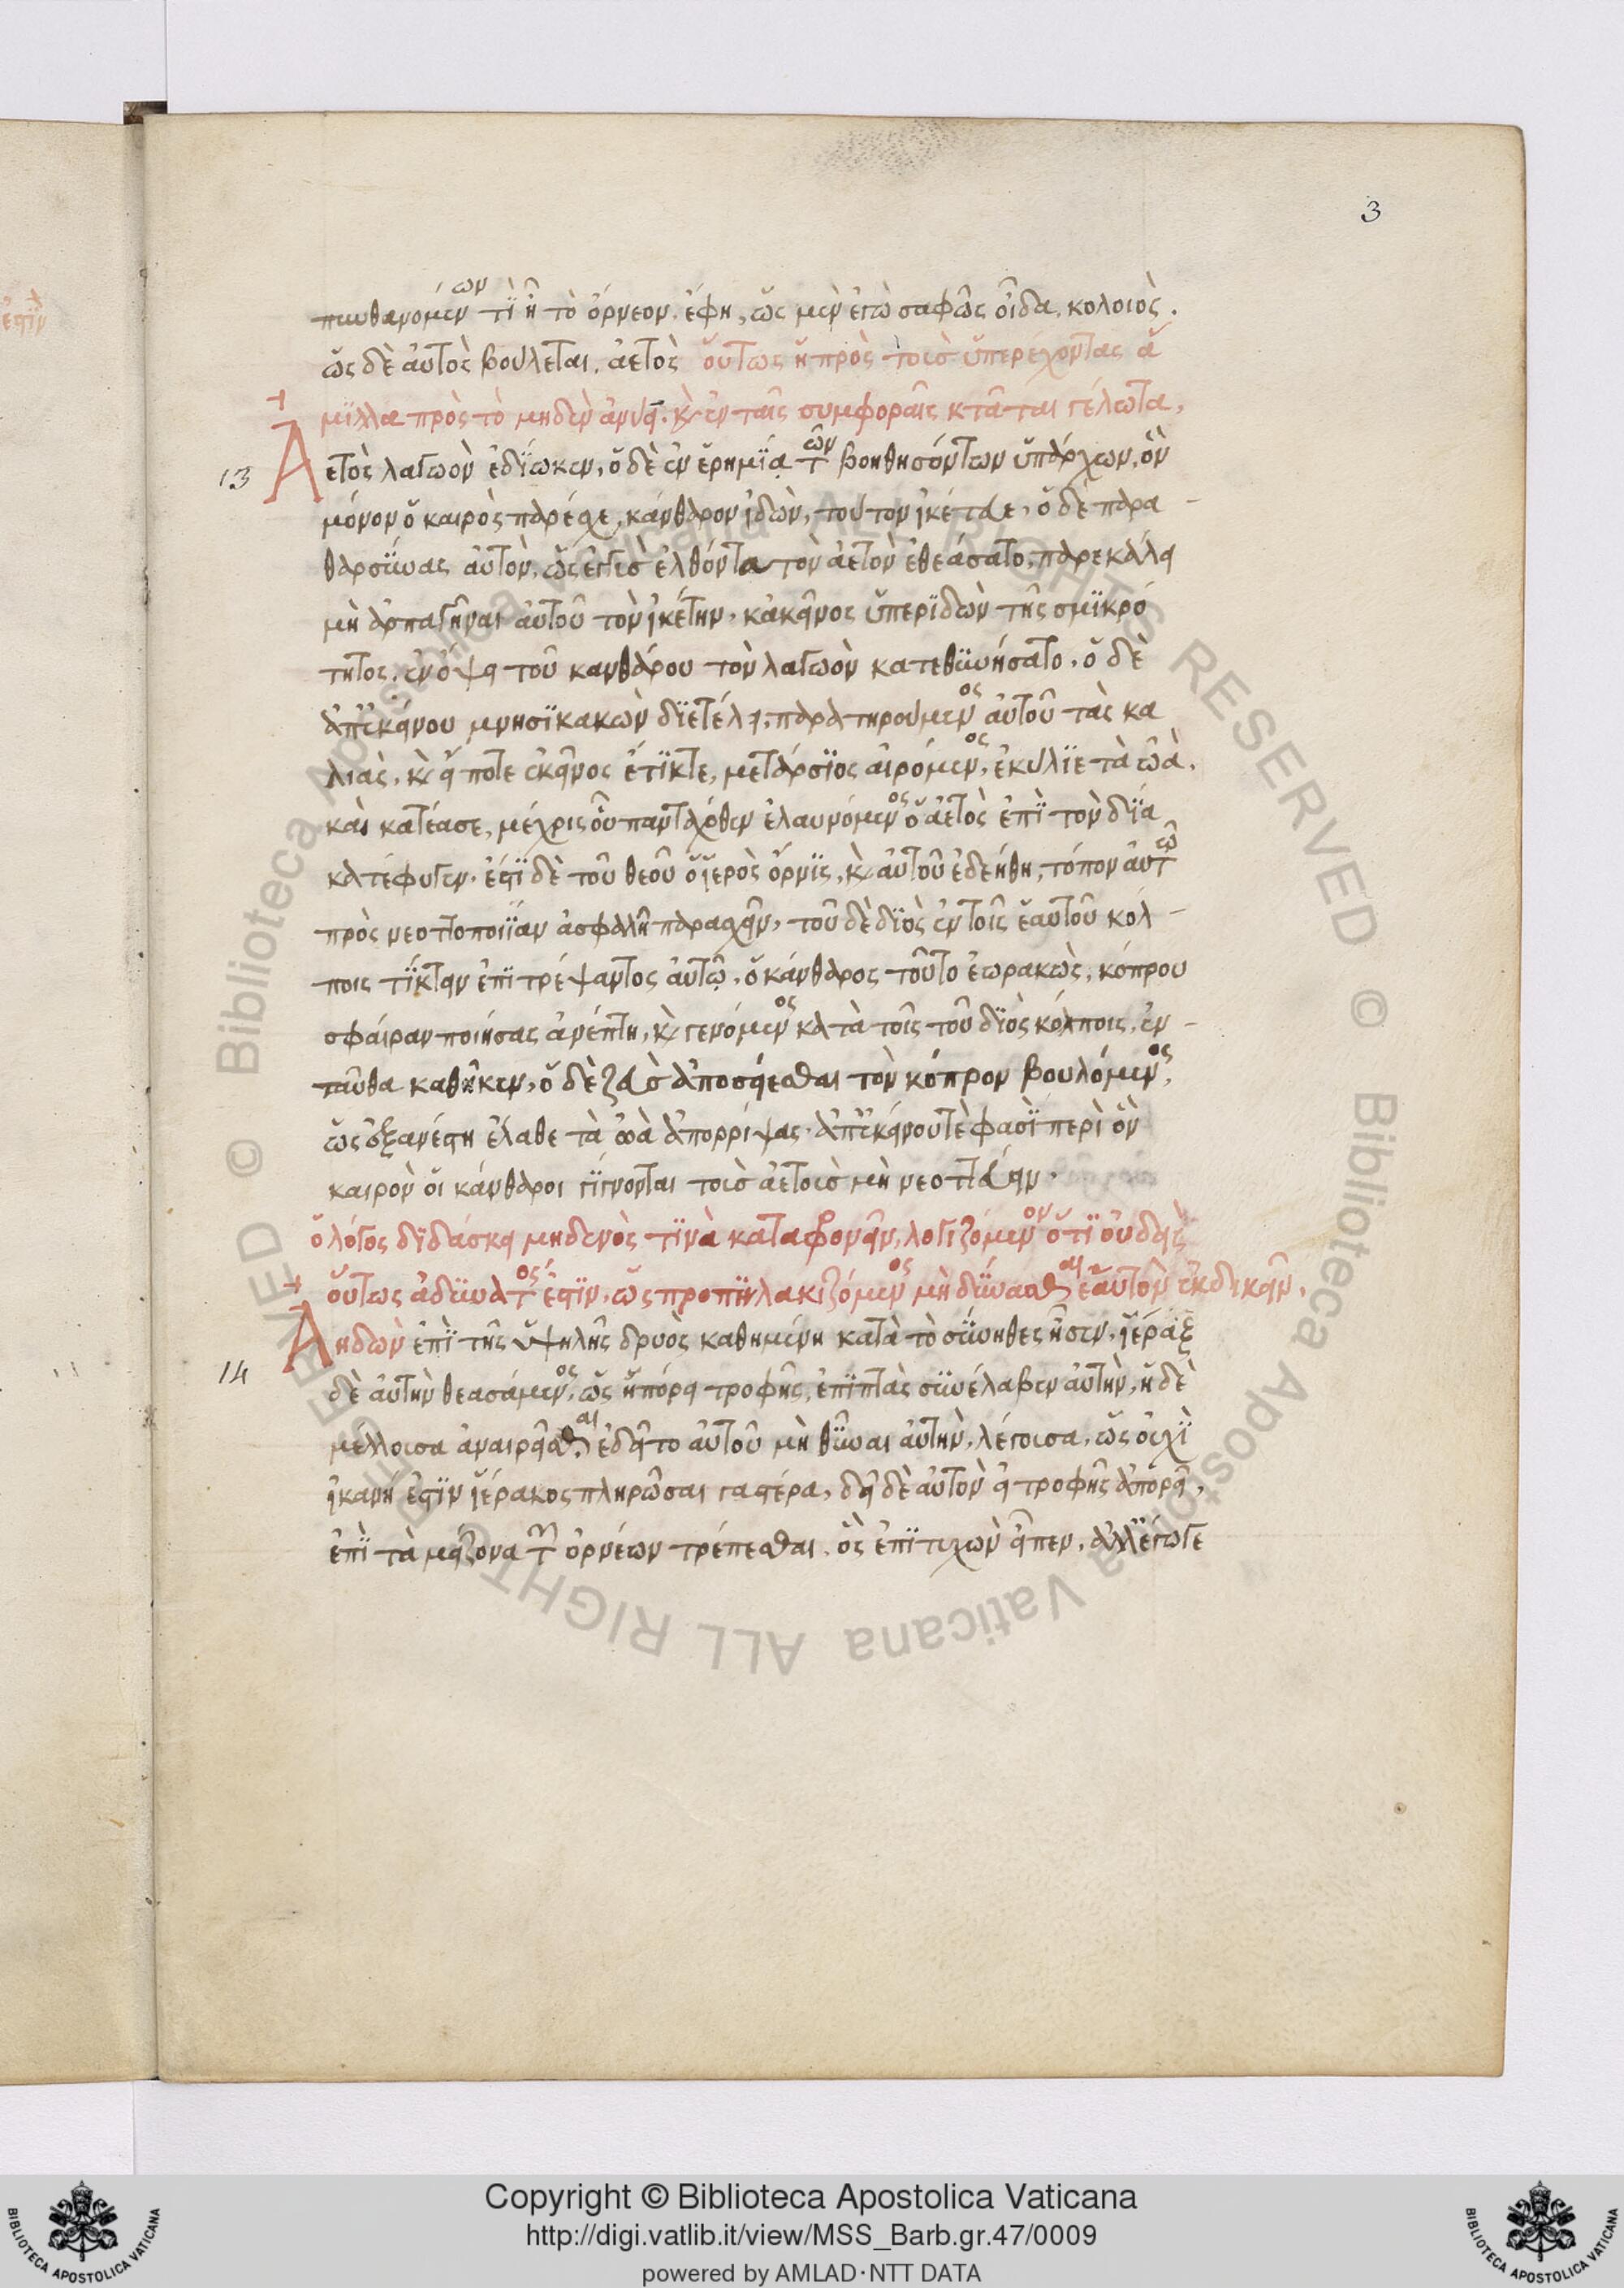 3
πυνθανομένων τί ἢ τὸ ὄρνεον. ἔφη, ὡς μὲν ἐγὼ σαφῶς οἶδα, κολοιὸς.
ὡς δὲ αὐτὸς βούλεται, ἀετὸς οὕτως ἡ πρὸς τοὺς ὑπερέχοντας ἅ
μιλλα πρὸς τὸ μηδὲν ἀνύει. καὶ ἐν ταῖς συμφοραῖς κτᾶται γέλωτα.
13 Ἀετὸς λαγωὸν ἐδίωκεν, ὁ δὲ ἐν ἐρημίᾳ τῶν βοηθησόντων ὑπάρχων, ὃν
μόνον ὁ καιρὸς παρέσχε, κάνθαρον ἰδὼν, τοῦτον ἱκέτευε, ὁ δὲ παρα-
θαρσύνας αὐτὸν, ὡς ἐγγὺς ἐλθόντα τὸν ἀετὸν ἐθεάσατο, παρεκάλει
μὴ ἁρπαγῆναι αὐτοῦ τὸν ἱκέτην. κἀκεῖνος ὑπεριδὼν τῆς σμικρό
τητος, ἐν ὄψει τοῦ κανθάρου τὸν λαγωὸν κατεθοινήσατο, ὁ δὲ
ἀπ' ἐκείνου μνησικακῶν διετέλει, παρατηρούμενος αὐτοῦ τὰς κα
λιὰς, καὶ εἴ ποτε ἐκεῖνος ἔτικτε, μετάρσιος αἰρόμενος, ἐκύλιε τὰ ὠὰ.
καὶ κατέασε, μέχρις οὗ πανταχόθεν ἐλαυνόμενος ὁ ἀετὸς ἐπὶ τὸν δία
κατέφυγεν. ἔστι δὲ τοῦ θεοῦ ὁ ἱερὸς ὄρνις, καὶ αὐτοῦ ἐδεήθη, τόπον αὐτῶ
πρὸς νεοττοποιίαν ἀσφαλῆ παρασχεῖν, τοῦ δὲ διὸς ἐν τοῖς ἑαυτοῦ κόλ-
ποις τίκτειν ἐπιτρέψαντος αὐτῷ, ὁ κάνθαρος τοῦτο ἑωρακὼς, κόπρου
σφαίραν ποιήσας ἀνέπτη, καὶ γενόμενος κατὰ τοῖς τοῦ διὸς κόλποις, ἐν-
ταῦθα καθῆκεν, ὁ δὲ ζεὺς ἀποσείεσθαι τὸν κόπρον βουλόμενος,
ὡς ἐξανέστη ἔλαθε τὰ ὠὰ ἀπορρίψας. ἀπ' ἐκείνου τὲ φασὶ περὶ ὃν
καιρὸν οἱ κάνθαροι γίγνονται τοὺς ἀετοὺς μὴ νεοττεύειν.
ὁ λόγος διδάσκει μηδενὸς τινὰ καταφρονεῖν, λογιζόμενον ὅτι οὐδεὶς
οὕτως ἀδύνατός ἐστιν, ὡς προπηλακιζόμενος μὴ δύνασθαι ἑαυτὸν ἐκδικεῖν.
14 Ἀηδὼν ἐπὶ τῆς ὑψηλῆς δρυὸς καθημένη κατὰ τὸ σύνηθες ἦσεν, ἱέραξ
δὲ αὐτὴν θεασάμενος, ὡς ἠπόρει τροφῆς, ἐπιπτὰς συνέλαβεν αὐτὴν, ἡ δὲ
μέλλουσα ἀναιρεῖσθαι ἐδεῖτο αὐτοῦ μὴ θῦναι αὐτὴν, λέγουσα, ὡς οὐχὶ
ἱκανή ἐστιν ἱέρακος πληρῶσαι γαστέρα, δεῖ δὲ αὐτὸν εἰ τροφῆς ἀπορεῖ,
ἐπὶ τὰ μείζονα τῶν ὀρνέων τρέπεσθαι. ὃς ἐπιτυχὼν εἶπεν, ἀλλ' ἔγωγε
Copyright © Biblioteca Apostolica Vaticana
http://digi.vatlib.it/view/MSS_Barb.gr.47/0009
powered by AMLAD·NTT DATA
BIBLIOTECA APOSTOLICA VATICANA
BIBLIOTECA APOSTOLICA VATICANA